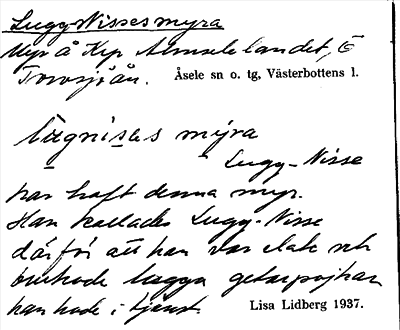 Lugg-Nisses myra
Myr å Krp Åmselelandet, Ö
Torvsjöån. Åsele sn o. tg, Västerbottens l.
lu̱gnis̱es mýra
Lugg-Nisse
har haft denna myr.
Han kallades Lugg-Nisse
därför att han var elak och
brukade lugga getarpojkar
han hade i tjänst.
Lisa Lidberg 1937.